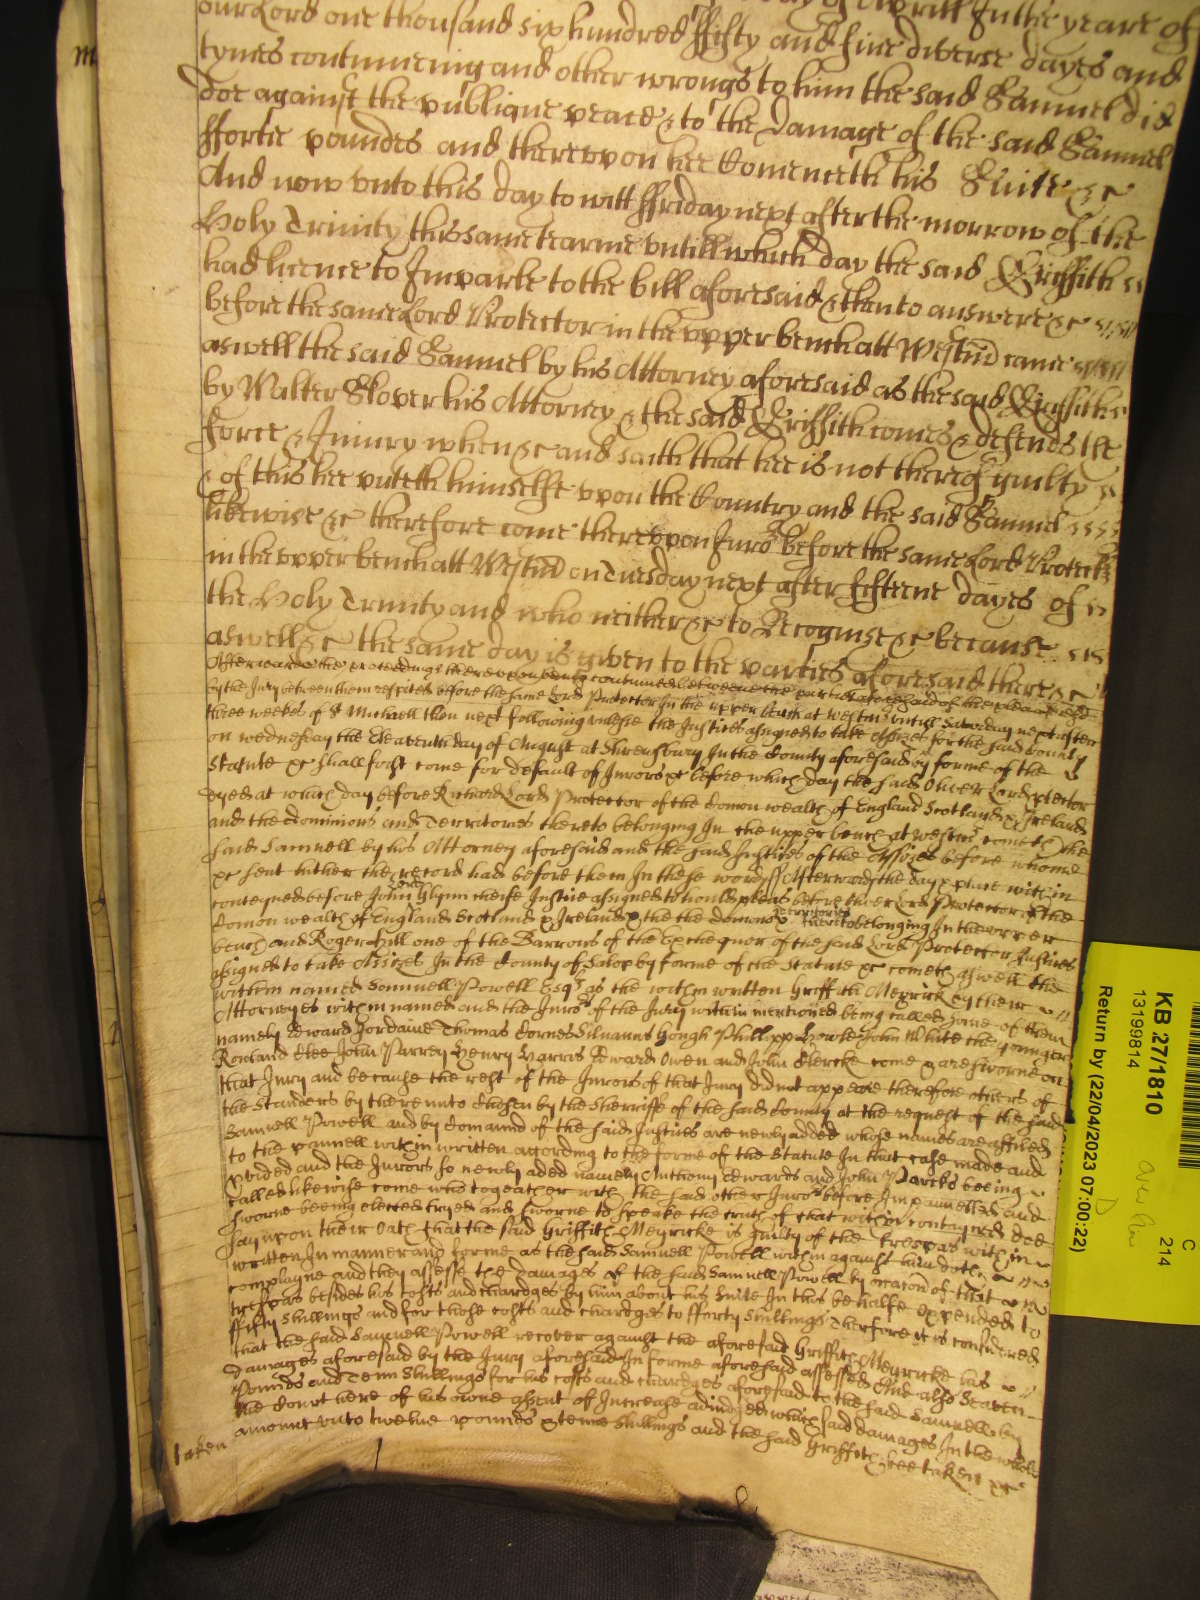 our Lord one thousand six hundred ffifty and five diverse dayes and
tymes contynueing and other wrongs to him the said Samuel did
doe against the publique peace & to the damage of the said Samuel
ffortie poundes and thereupon hee bringeth his Suite &c
And now unto this day to witt ffriday next after the morrow of the
Holy Trinity this same tearme untill which day the said Griffith
had licence to Imparle to the bill aforesaid & then to answere &c
before the same Lord Protector in the upper bench att Westm̄ came
aswell the said Samuel by his Attorney aforesaid as the said Griffith
by Walter Slover his Attorney & the said Griffith comes & defends the
force & Injury when &c and saith that hee is not thereof guilty
& of this hee putteth himselfe upon the Country and the said Samuel
likewise &c therefore come thereupon Juroͬ before the same Lord Protector
in the upper bench att Westm̄ on Tuesday next after fifteene dayes of
the Holy Trinity and who neither &c to Recognise &c because
aswell &c the same day is given to the parties aforesaid there &c
Afterwards the proceedings thereupon being continued betweene the parties aforesaid of the plea aforesd
by the Jury betweene them respited before the same Lord Protector In the upper bench at Westm̄ untill Saterday next after
three weekes of St Michaell then next following unlesse the Justices assigned to take Assizes for the said County
on wednesday the Eleaventh day of August at Shrewsbury In the County aforesaid by forme of the
Statute &c shall first come for default of Jurors &c before which day the said Oliver Lord Protector
dyed at which day before Richard Lord Protector of the Comon wealth of England Scotland & Ireland
and the dominions and Territories thereto belonging In the upper bench at Westm̄ cometh the
said Samuell by his Attorney aforesaid and the said Justices of the Assizes before whome
&c sent hither their record had before them In these words ss Afterwards the day & place within
conteyned before John Glynn cheife Justice assigned to hould pleas before the Lord Protector of the
Comon wealth of England Scotland & Ireland & the the domons & territories thereto belonging In the upper
bench and Roger Hill one of the Barrons of the Exchequer of the said Lord Protector Justices
assigned to take Assizes In the County of Salop by forme of the Statute &c cometh aswell the
within named Samuell Powell Esqr as the within written Griffith Meyrick by their
Attorneyes within named and the Juroͬs of the Jury within mentioned being called some of them
namely Edward Jordaine Thomas Cornes Silvanus Gough Phillipp Howle John White the younger
Rowland Elee John Purrey Henry Harris Edward Owen and John Clercke come & are sworne on
that Jury and because the rest of the Jurors of that Jury did not appeare therefore others of
the Standers by thereunto Chosen by the Sherriffe of the said County at the request of the said
Samuell Powell and by Comannd of the said Justices are newly added whose names are affiled
to the pannell within written according to the forme of the Statute In that case made and
p̱vided and the Jurors so newly added namely Anthony Edwards and John Parcks beeing
called likewise come who togeather with the said other Juroͬs before Impannelled and
sworne beeing elected tryed and sworne to speake the truth of that within conteyned doe
say upon their Oath that the said Griffith Meyricke is guilty of the trespas within
written In manner and forme as the said Samuell Powell within against him doth
complayne and they assesse the damages of the said Samuell Powell by occac̄on of that
trespas besides his costs and chardges by him about his Suite In this behalfe expended to
ffifty shillings and for those costs and chardges to fforty shillings Therefore it is considered
that the said Samuell Powell recover against the aforesaid Griffith Meyricke his
damages aforesaid by the Jury aforesaid In forme aforesaid assessed And also Seaven
Pounds and Tenn Shillings for his costs and chardges aforesaid to the said Samuell by
the Court here of his owne assent of Increase adiudged which said damages In the whole
amount unto twelve pounds & tenne shillings and the said Griffith bee taken &c
taken
KB 27/1810
13199814
C
214
Return by (22/04/2023 07:00:22)
D